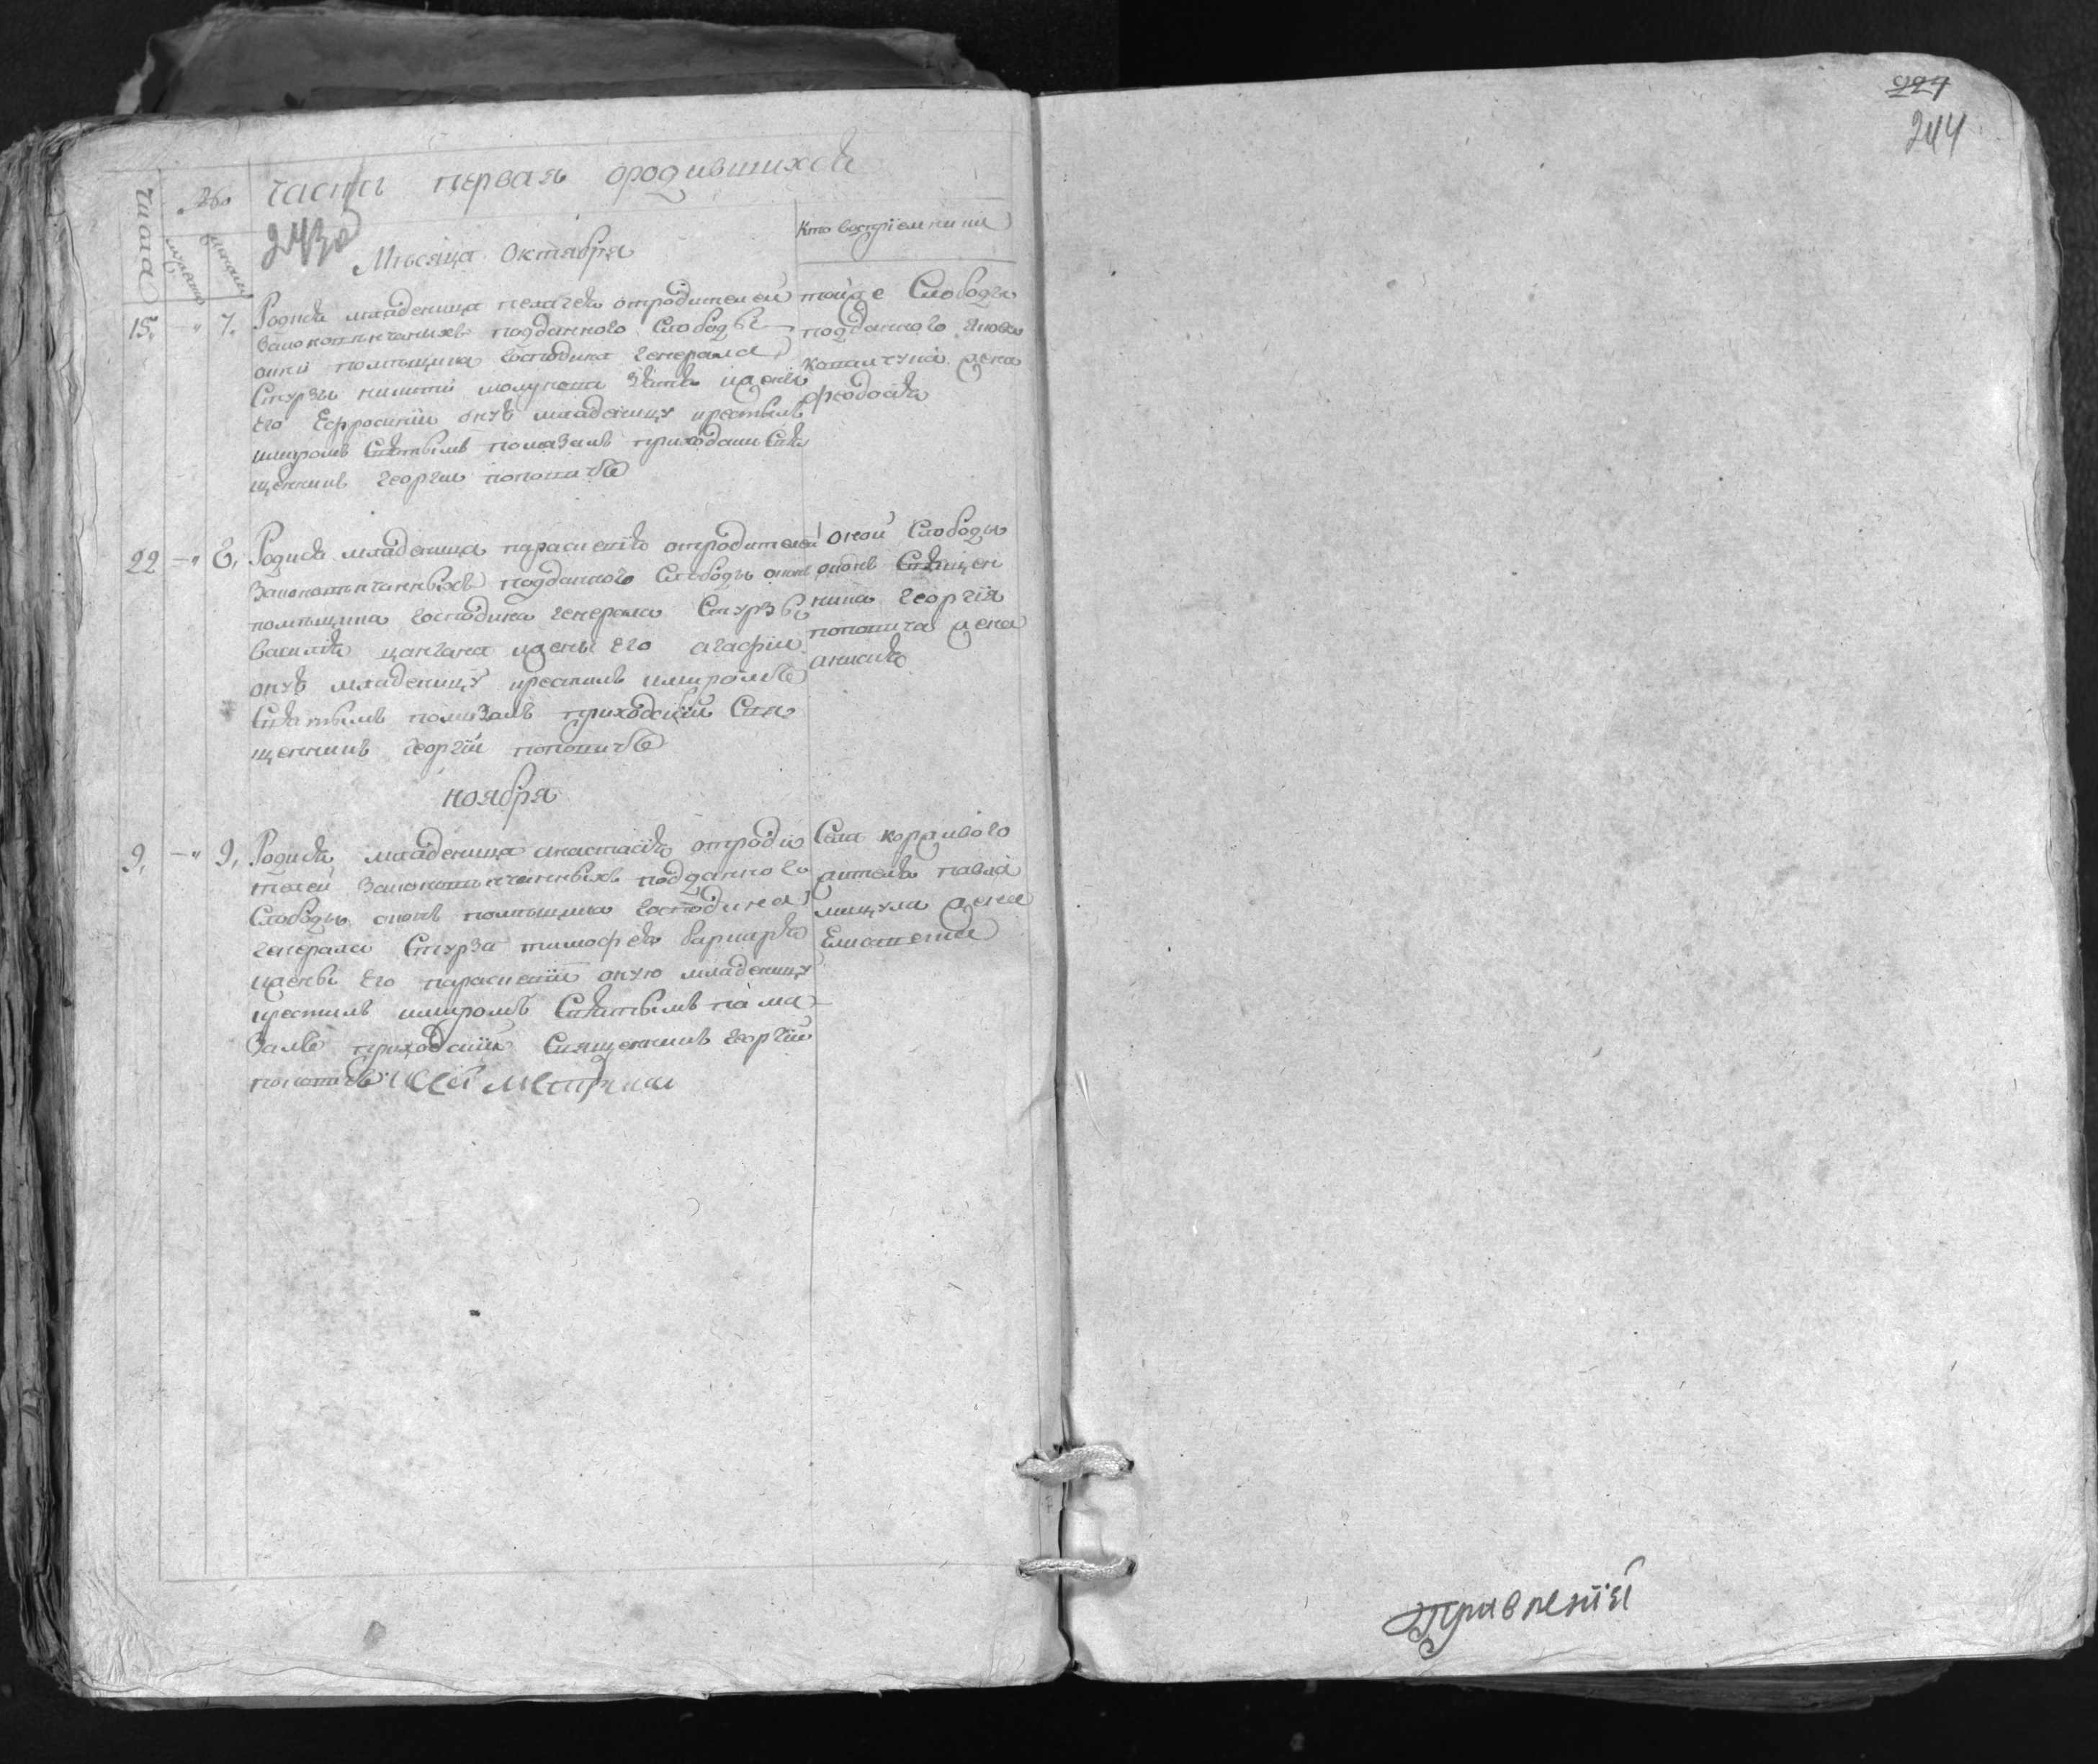 Числа
№
мужеска
женска
часть первая ородившихся
243об
Месяца Октября
Кто восприемники
15. " 7. Родися младеница пелагея отродителей
законовенчаных подданного Слободы
помещика Господина Генерала
Стурзы никити зятя ижены
Его Ефросинии онув младеницу крестилъ
имиромъ Святымъ помазалъ приходски Свя
щенникъ Георги поповичъ
тойже Слободы
подданного Якова
жена
феодосия
22 " 8, Родися младеница параскевия отродителей
законовенчанныхъ подданного Слободы оной
помещика Господина Генерала Стурзы
василия цангана ижены Его агафии
онув младеницу крестилъ имиромъ
Святымъ помазалъ приходский Свя
щенникъ Георгий поповичъ
оной Слободы
Священ
ника Георгия
поповича жена
анисия
ноября
9, " 9, Родися младеница анастасия отроди
телей законовенчанныхъ подданного
Слободы оной помещика Господина
Генерала Стурза тимофея
ижены Его параскевии оную младеницу
крестилъ имиромъ Святымъ пома
залъ приходский Священникъ Георгий
поповичъ: Ксей метрики
Села коржового
жителя павла
мицула жена
Елисавета
224
244
правления